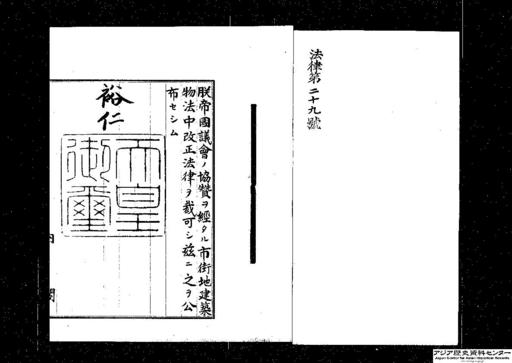 法律第二十九號
朕帝國議會ノ協贊ヲ經タル市街地建築
物法中改正法律ヲ裁可シ茲ニ之ヲ公
布セシム
裕仁
天皇
御璽
内閣
アジア歴史資料センター
Japan Center for Asian Historical Records